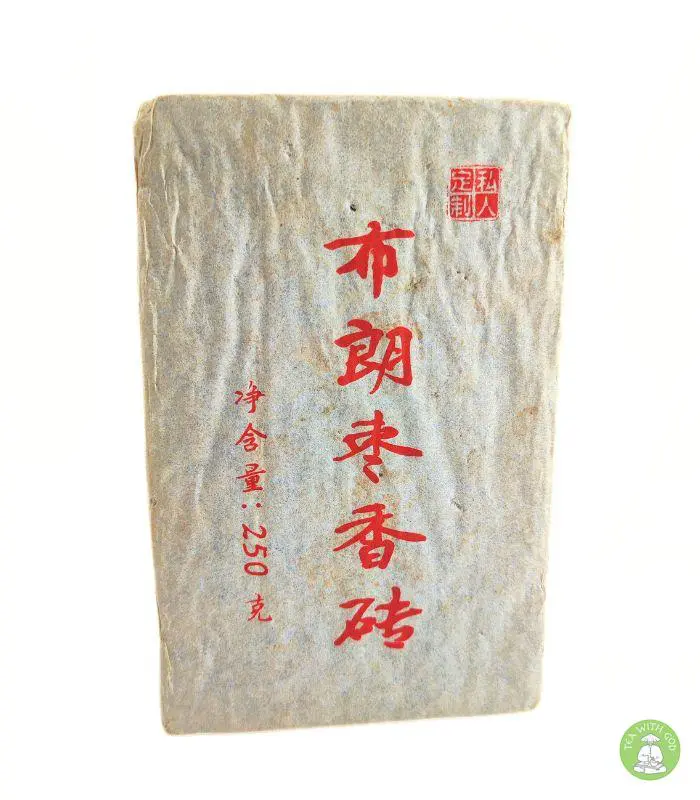 私人定制
布朗枣香砖
净含量：250 克
TEA WITH GOD